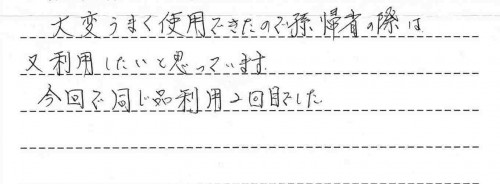 大変うまく使用できたので孫帰省の際は
又利用したいと思っています
今回で同じ品利用2回目でした